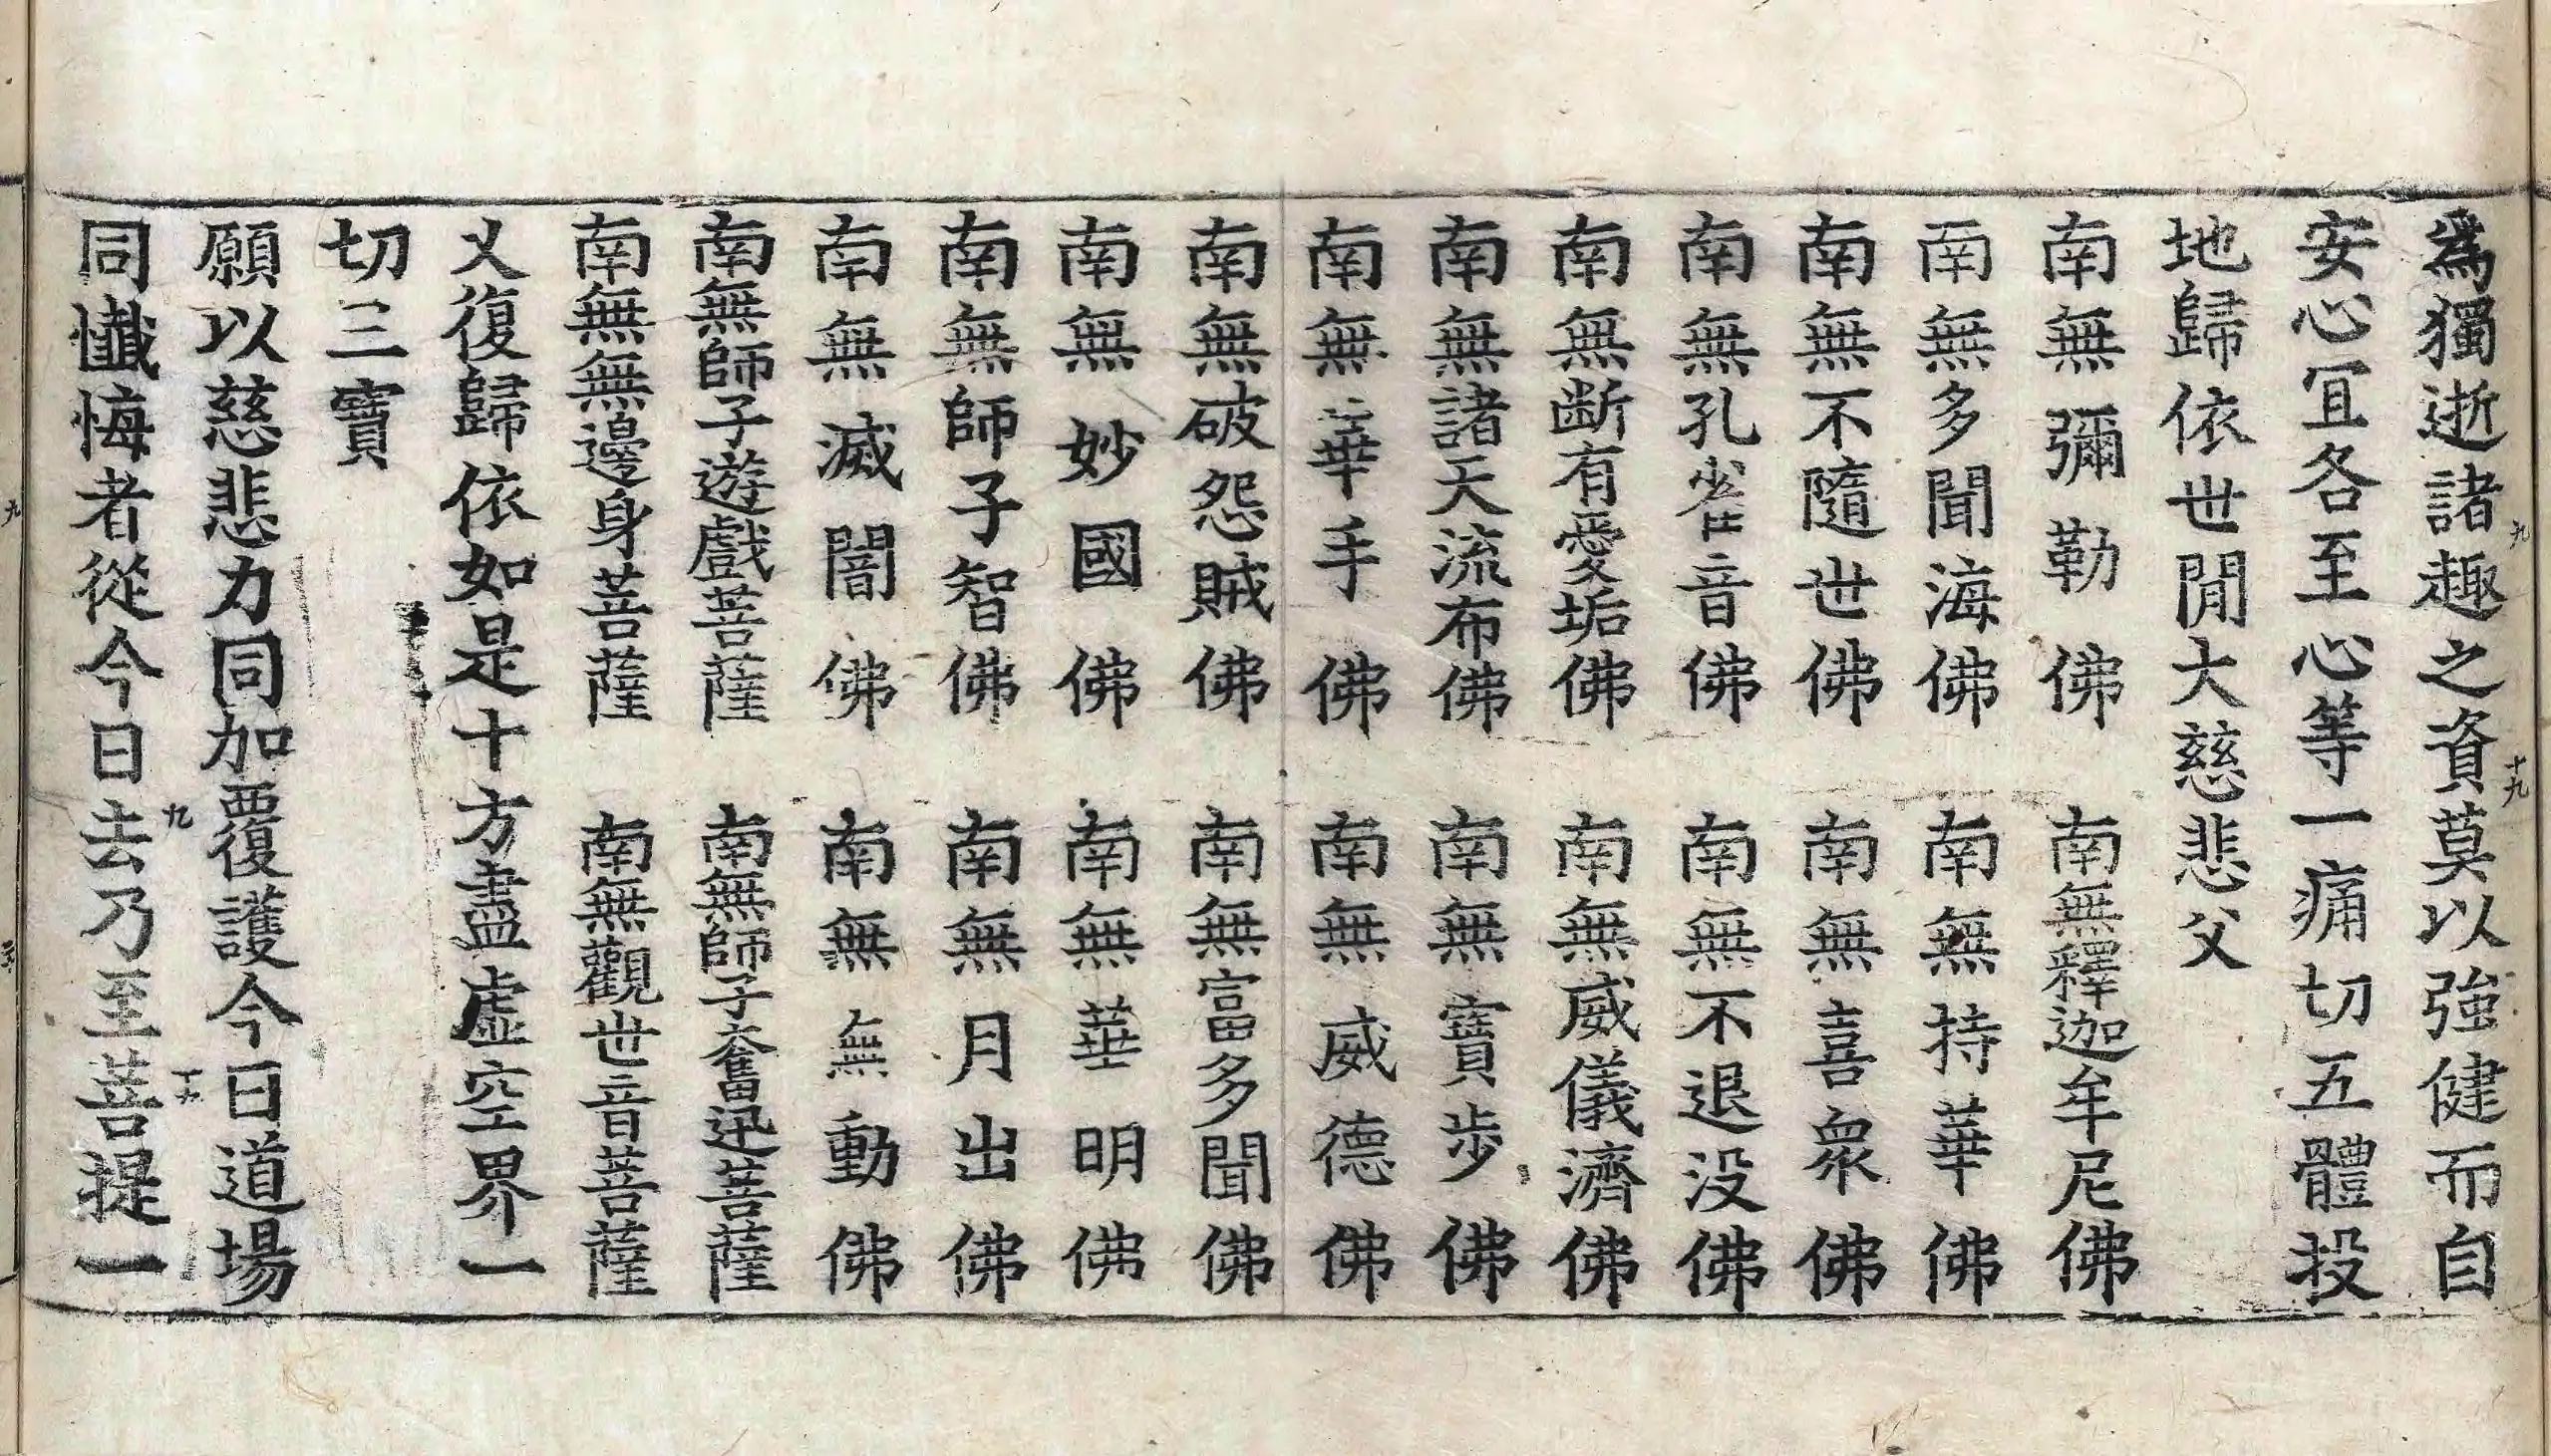 為獨逝諸趣之資莫以強健而自
安心冝各至心等一痛切五體投
地歸依世閒大慈悲父
南無彌勒佛　南無釋迦牟尼佛
南無多聞海佛　南無持華佛
南無不隨世佛　南無喜衆佛
南無孔雀音佛　南無不退没佛
南無断有愛垢佛　南無威儀濟佛
南無諸天流布佛　南無寶歩佛
南無華手佛　南無威德佛
南無破怨賊佛　南無富多聞佛
南無妙國佛　南無華明佛
南無師子智佛　南無月出佛
南無滅闇佛　南無無動佛
南無師子遊戲菩薩　南無師子奮迅菩薩
南無無邊身菩薩　南無觀世音菩薩
又復歸依如是十方盡虛空界一
切三寶
願以慈悲力同加覆護今日道場
同懺悔者從今日去乃至菩提一